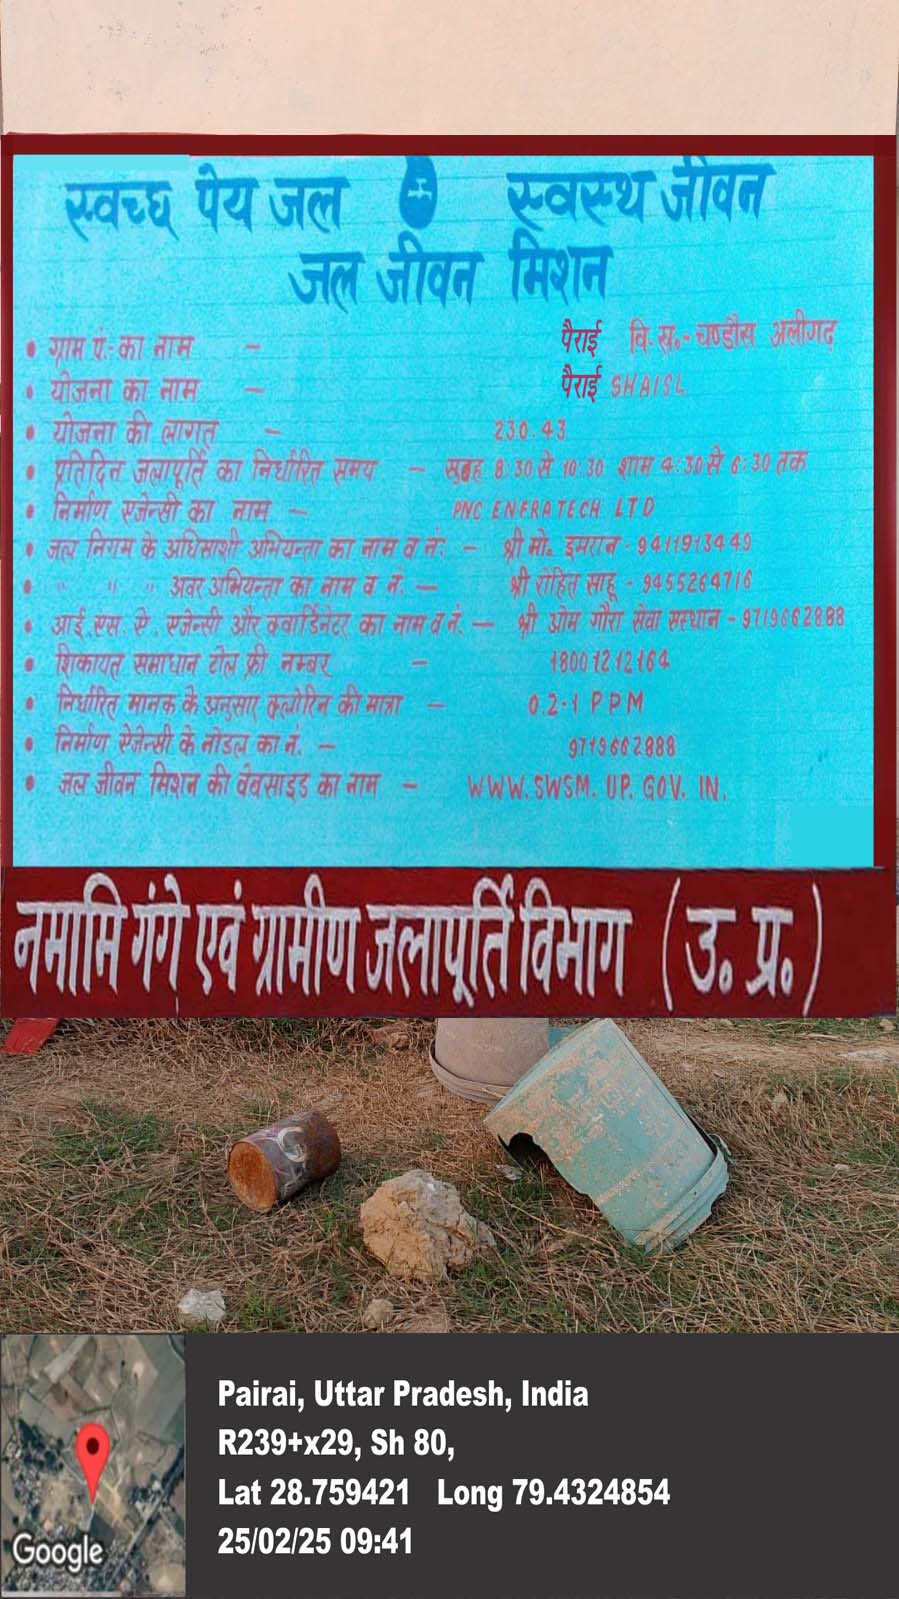 स्वच्छ पेय जल स्वस्थ जीवन
जल जीवन मिशन
• ग्राम पं.-का नाम - पैराई वि.ख.- चण्डौस अलीगढ़
• योजना का नाम - पैराई SHAISL
• योजना की लागत - 230.43
• प्रतिदिन जलापूर्ति का निर्धारित समय - सुबह 8:30 से 10:30 शाम 4:30 से 6:30 तक
• निर्माण एजेन्सी का नाम - PNC ENFRATECH LTD
• जल निगम के अधिसाशी अभियन्ता का नाम व नं: - श्री मो. इमरान - 9411913449
• " " " अवर अभियन्ता का नाम व नं. - श्री रोहित साहू - 9455264716
• आई.एस.ऐ. एजेन्सी और क्वार्डिनेटर का नाम व नं. - श्री ओम गौरा सेवा सस्थान - 9719662888
• शिकायत समाधान टोल फ्री नम्बर - 18001212164
• निर्धारित मानक के अनुसार क्लोरिन की मात्रा - 0.2-1 PPM
• निर्माण ऐजेन्सी के नोडल का नं. - 9719662888
• जल जीवन मिशन की वेबसाइड का नाम - WWW.SWSM.UP.GOV.IN.
नमामि गंगे एवं ग्रामीण जलापूर्ति विभाग (उ. प्र.)
Pairai, Uttar Pradesh, India
R239+x29, Sh 80,
Lat 28.759421 Long 79.4324854
25/02/25 09:41
Google